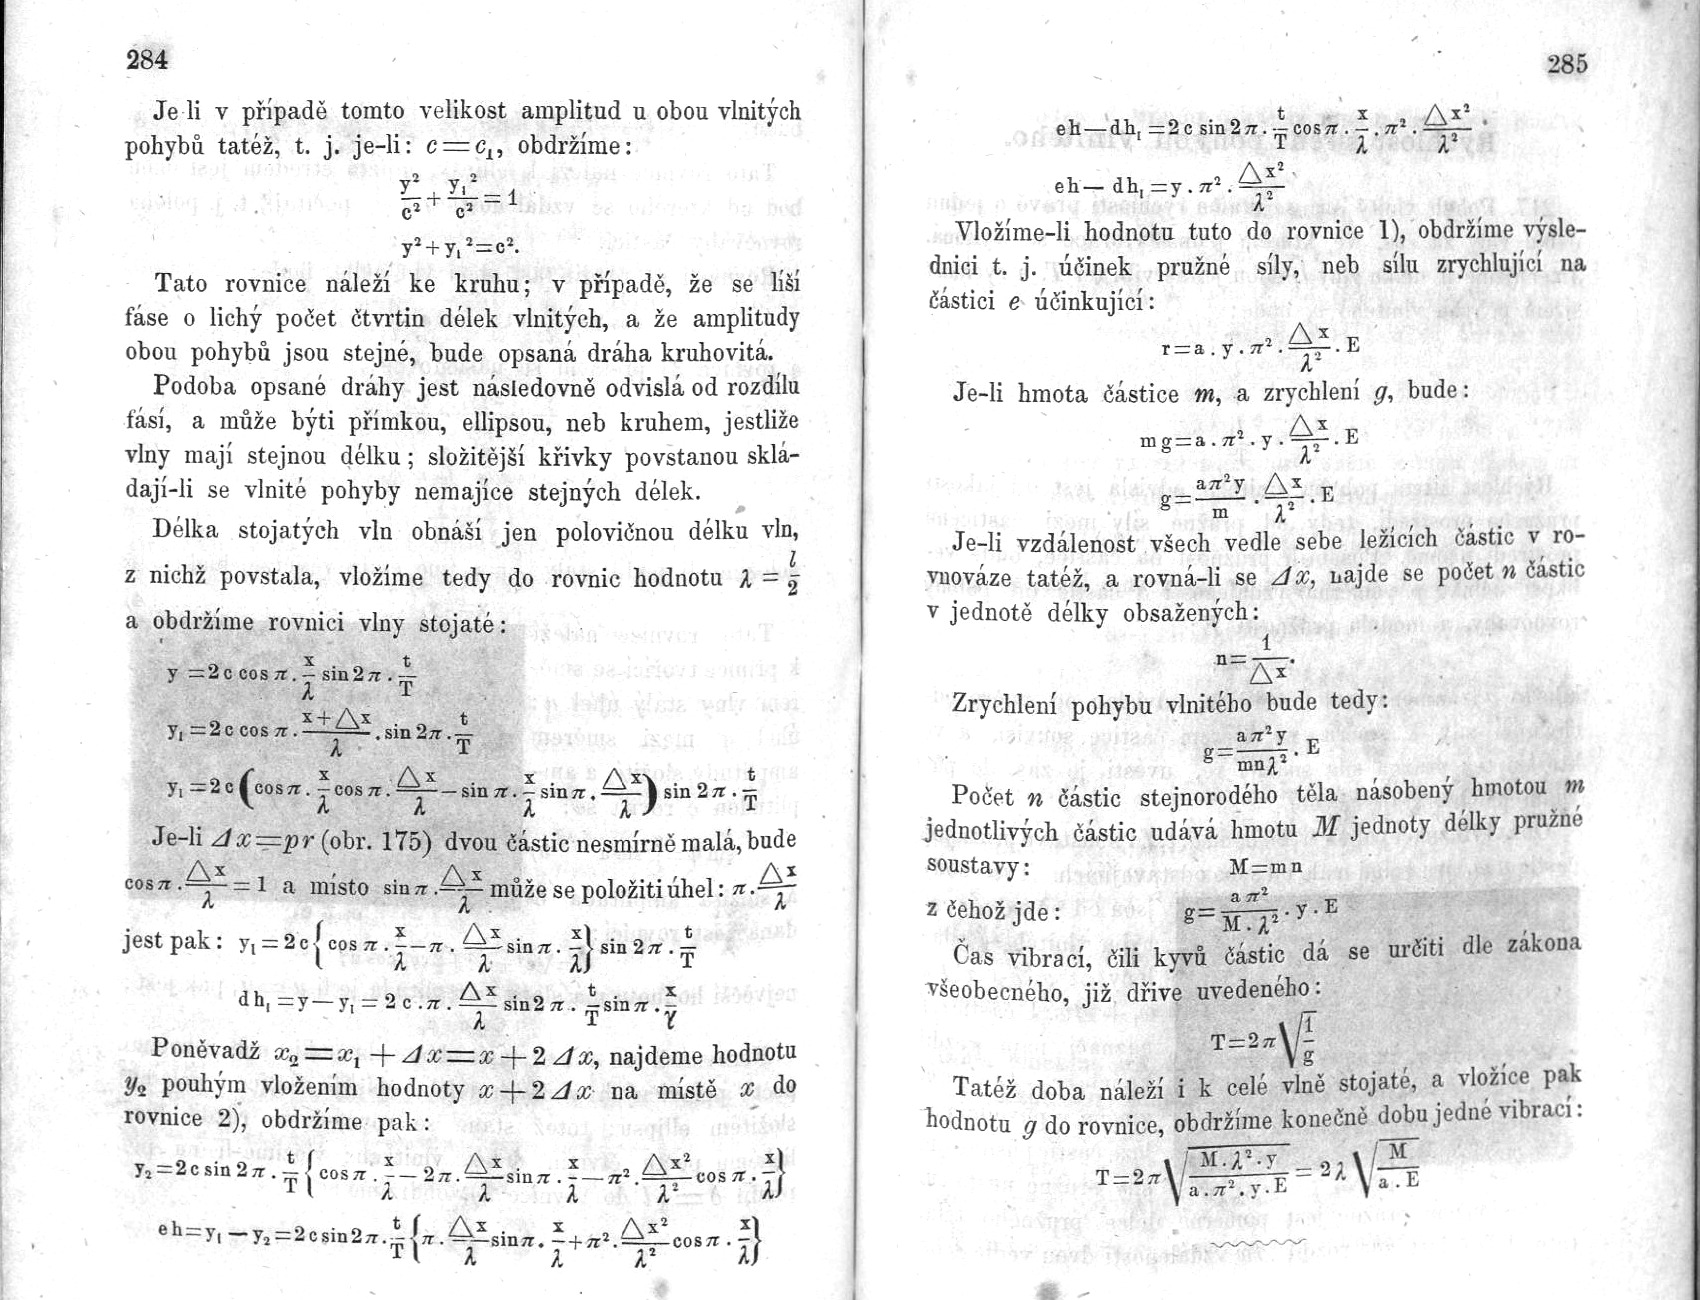 284
Je li v případě tomto velikost amplitud u obou vlnitých
pohybů tatéž, t. j. je-li: c = c₁, obdržíme:
y²/c² + y₁²/c² = 1
y² + y₁² = c².
Tato rovnice náleží ke kruhu; v případě, že se liší
fáse o lichý počet čtvrtin délek vlnitých, a že amplitudy
obou pohybů jsou stejné, bude opsaná dráha kruhovitá.
Podoba opsané dráhy jest následovně odvislá od rozdílu
fásí, a může býti přímkou, ellipsou, neb kruhem, jestliže
vlny mají stejnou délku; složitější křivky povstanou sklá-
dají-li se vlnité pohyby nemajíce stejných délek.
Délka stojatých vln obnáší jen polovičnou délku vln,
z nichž povstala, vložíme tedy do rovnic hodnotu λ = l/2
a obdržíme rovnici vlny stojaté:
y = 2 c cos π . x/λ sin 2 π . t/T
y₁ = 2 c cos π . (x + △x)/λ . sin 2π . t/T
y₁ = 2 c (cos π . x/λ cos π . △x/λ — sin π . x/λ sin π . △x/λ) sin 2 π . t/T
Je-li Δx = pr (obr. 175) dvou částic nesmírně malá, bude
cos π . △x/λ = 1 a místo sin π . △x/λ může se položiti úhel: π . △x/λ
jest pak: y₁ = 2 c {cos π . x/λ — π . △x/λ sin π . x/λ} sin 2 π . t/T
d h₁ = y — y₁ = 2 c . π . △x/λ sin 2 π . t/T sin π . x/γ
Poněvadž x₂ = x₁ + Δx = x + 2 Δx, najdeme hodnotu
y₂ pouhým vložením hodnoty x + 2 Δx na místě x do
rovnice 2), obdržíme pak:
y₂ = 2 c sin 2 π . t/T {cos π . x/λ — 2 π . △x/λ sin π . x/λ — π² . △x²/λ² cos π . x/λ}
e h = y₁ — y₂ = 2 c sin 2 π . t/T {π . △x/λ sin π . x/λ + π² . △x²/λ² cos π . x/λ}
285
eh — dh₁ = 2 c sin 2 π . t/T cos π . x/λ . π² . △x²/λ² .
eh — dh₁ = y . π² . △x²/λ²
Vložíme-li hodnotu tuto do rovnice 1), obdržíme výsle-
dnici t. j. účinek pružné síly, neb sílu zrychlující na
částici e účinkující:
r = a . y . π² . △x/λ² . E
Je-li hmota částice m, a zrychlení g, bude:
m g = a . π² . y . △x/λ² . E
g = aπ²y/m . △x/λ² . E
Je-li vzdálenost všech vedle sebe ležících částic v ro-
vnováze tatéž, a rovná-li se Δx, najde se počet n částic
v jednotě délky obsažených:
n = 1/△x.
Zrychlení pohybu vlnitého bude tedy:
g = aπ²y/mnλ² . E
Počet n částic stejnorodého těla násobený hmotou m
jednotlivých částic udává hmotu M jednoty délky pružné
soustavy: M = m n
z čehož jde: g = a π²/M . λ² . y . E
Čas vibrací, čili kyvů částic dá se určiti dle zákona
všeobecného, již dřive uvedeného:
T = 2 π √(1/g)
Tatéž doba náleží i k celé vlně stojaté, a vložíce pak
hodnotu g do rovnice, obdržíme konečně dobu jedné vibrací:
T = 2 π √(M . λ² . y/a . π² . y . E) = 2 λ √(M/a . E)